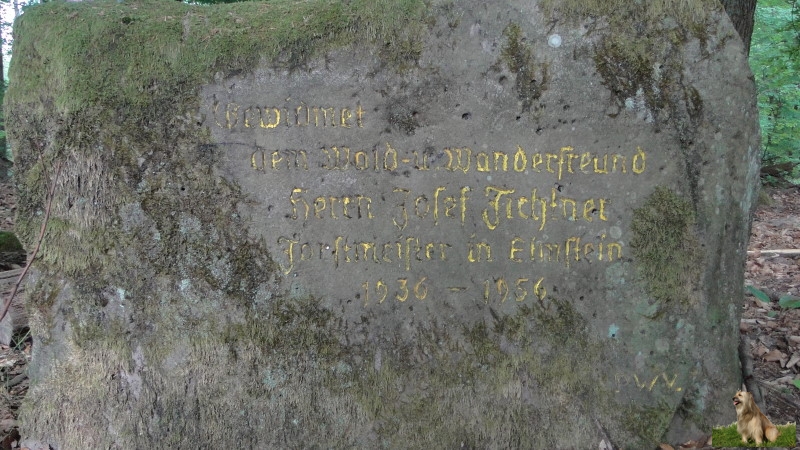 Gewidmet
dem Wald- u. Wanderfreund
Herrn Josef Fichtner
Forstmeister in Elmstein
1936 - 1956